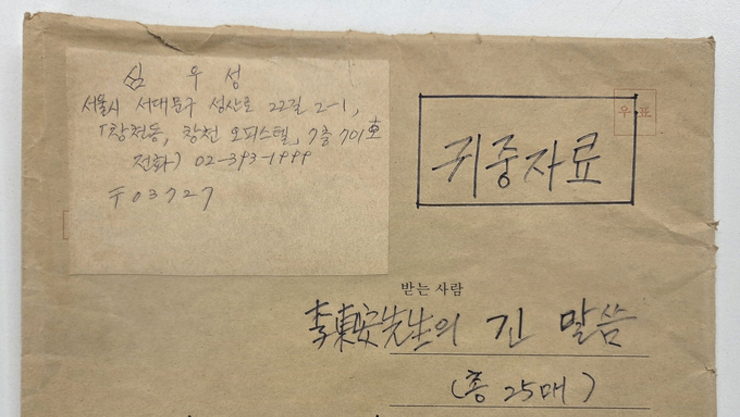 심우성
서울시 서대문구 성산로 22길 2-1,
「창천동, 창천 오피스텔」 7층 701호
전화) 02-393-1999
〒03727
우표
귀중자료
받는 사람
李東安先生의 긴 말씀
(총 25매)